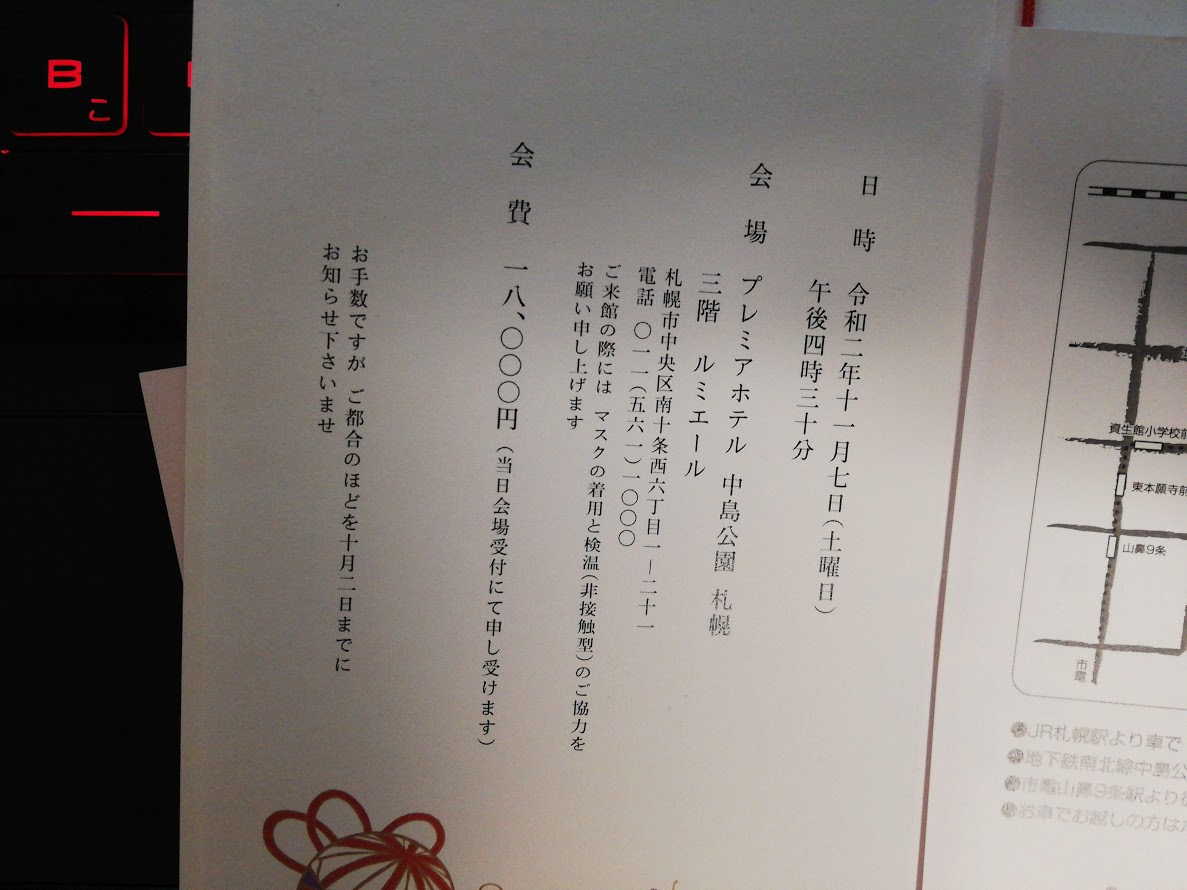 日時 令和二年十一月七日(土曜日)
午後四時三十分
会場 プレミアホテル 中島公園 札幌
三階 ルミエール
札幌市中央区南十条西六丁目一―二十一
電話 〇一一(五六一)一〇〇〇
ご来館の際には マスクの着用と検温(非接触型)のご協力を
お願い申し上げます
会費 一八、〇〇〇円(当日会場受付にて申し受けます)
お手数ですが ご都合のほどを十月二日までに
お知らせ下さいませ
資生館小学校前
東本願寺前
山鼻9条
市電
JR札幌駅より車で
地下鉄南北線中島公
市電山鼻9条駅より
お車でお越しの方は
B
こ